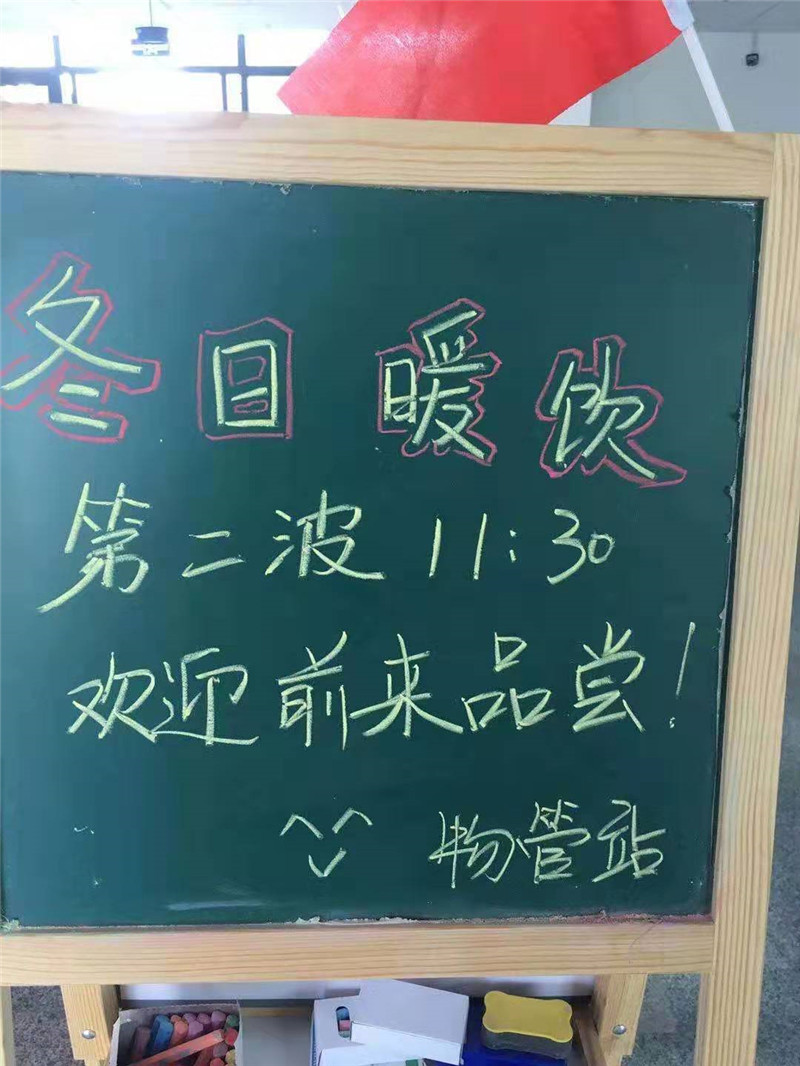 冬日暖饮
第二波 11:30
欢迎前来品尝!
物管站